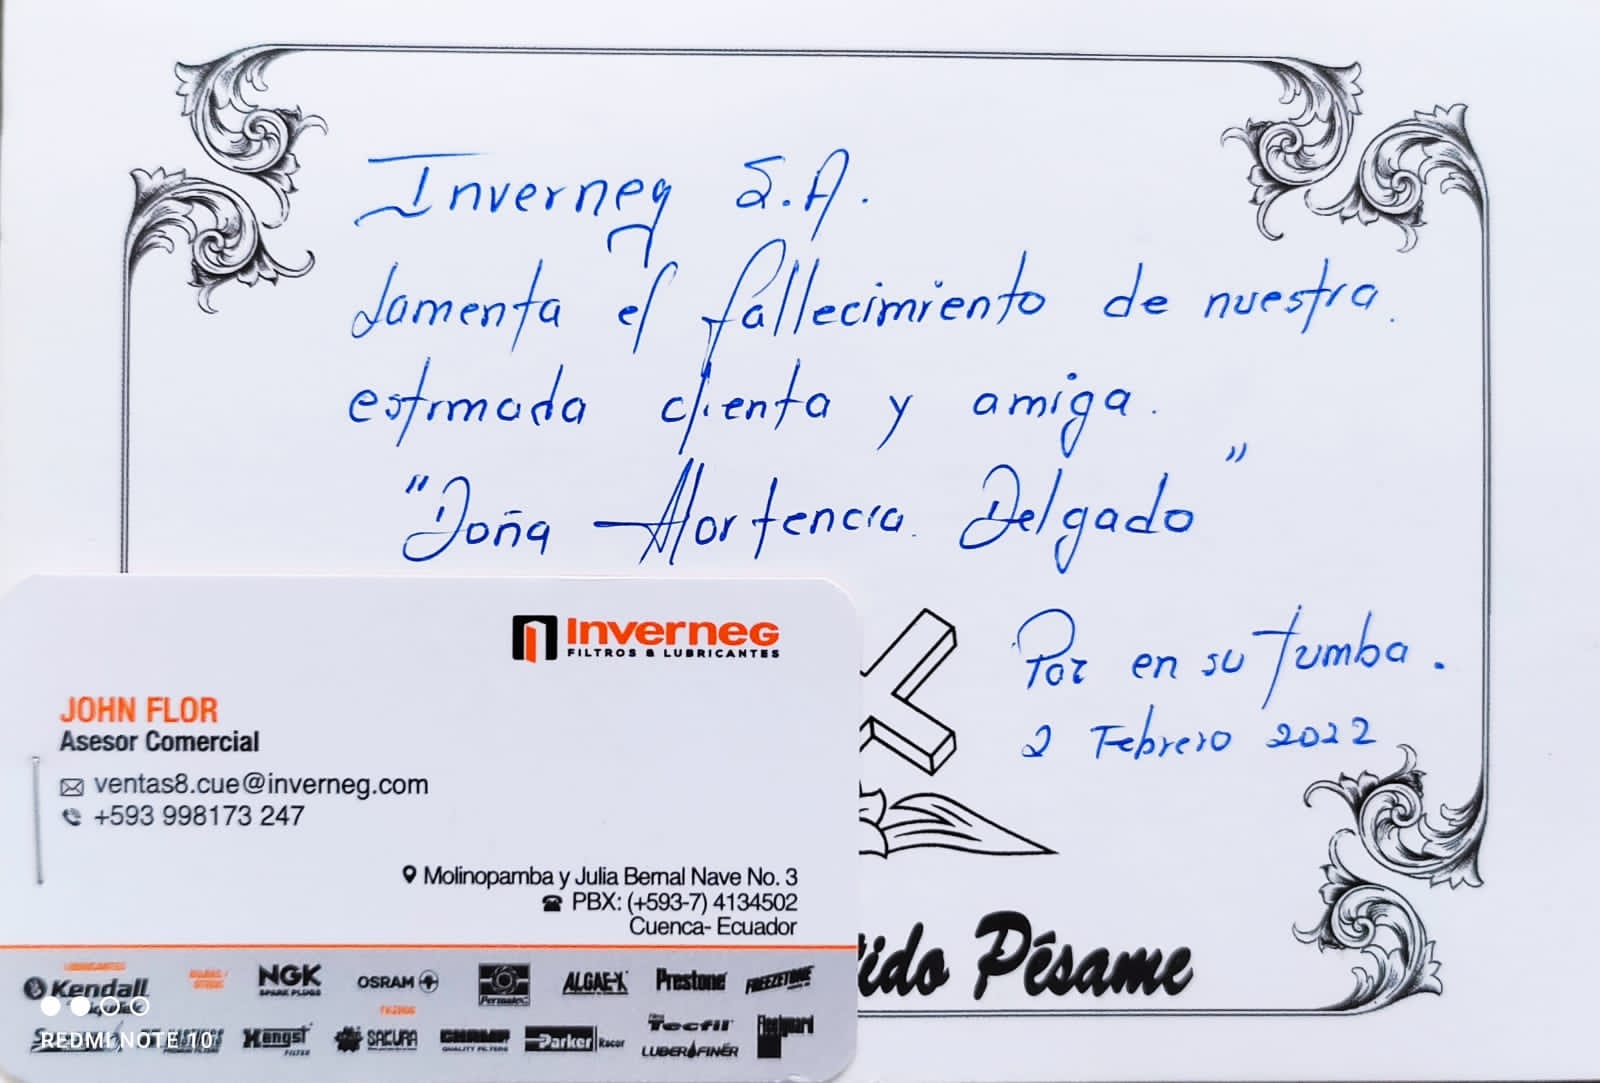 Inverneg S.A.
Lamenta el fallecimiento de nuestra.
estimada clienta y amiga.
"Doña Hortencia Delgado"
Paz en su tumba.
2 Febrero 2022
tido Pésame
Inverneg
FILTROS & LUBRICANTES
JOHN FLOR
Asesor Comercial
ventas8.cue@inverneg.com
+593 998173 247
Molinopamba y Julia Bernal Nave No. 3
PBX: (+593-7) 4134502
Cuenca- Ecuador
LUBRICANTES
Kendall
NGK
SPARK PLUGS
OSRAM
Permatex
ALGAE-X
Prestone
FREEZETONE
FILTROS
Hengst
FILTER
SAKURA
CHAMP
QUALITY FILTERS
Parker Racor
Tecfil
LUBERFINER
Fleetguard
REDMI NOTE 10